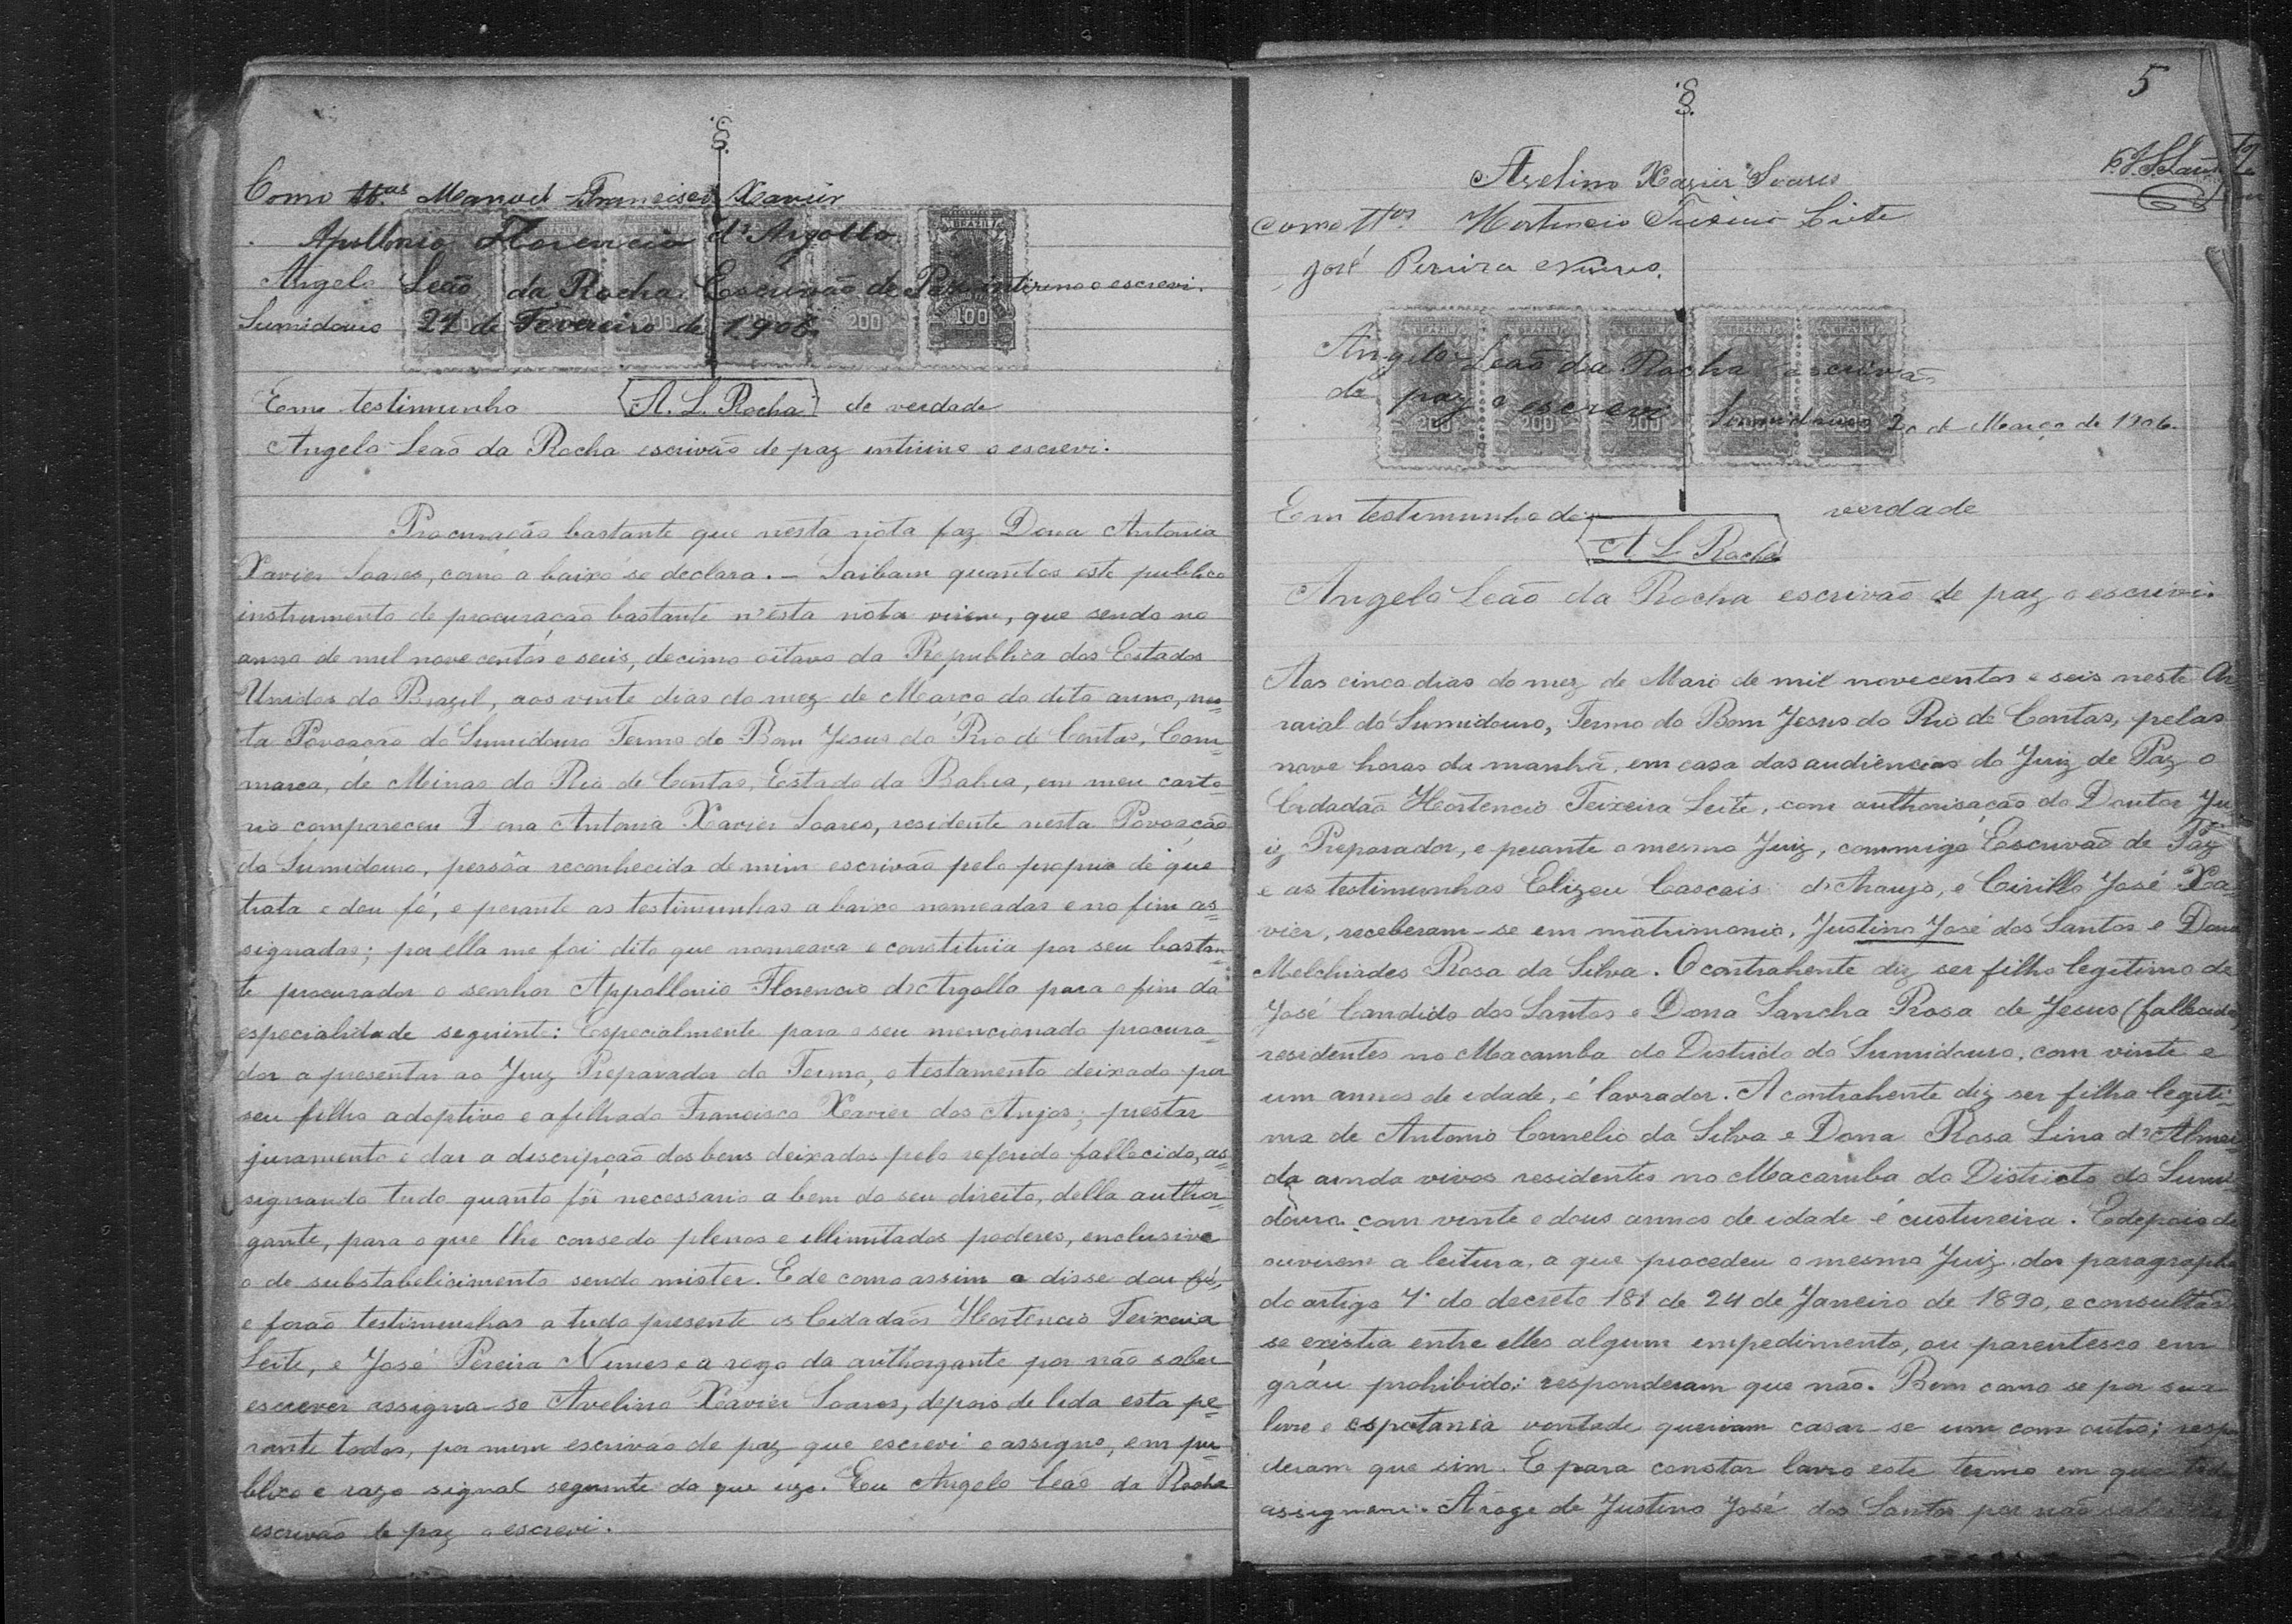 Como tt.as Manoel Francisco Xavier
Apollonio Florencio d'Argollo
Angelo Leão da Rocha Escrivão de Paz intirino o escrevi.
Sumidouro 27 de Fevereiro de 1906
200
100
Em testimunho A. L. Rocha de verdade
Angelo Leão da Rocha escrivão de paz intirino o escrevi.
Procuração bastante que nesta nóta faz Dona Antonia
Xavier Soares, como a baixo se declara. - Saibam quantos este publico
instrumento de procuração bastante n'esta nota virem, que sendo no
anno de mil nove centos e seis, decimo oitavo da Republica dos Estados
Unidos do Brazil, aos vinte dias do mez de Março do dito anno, nes=
ta Povoação do Sumidouro Termo do Bom Jesus do Rio de Contas, Com=
marca, de Minas do Rio de Contas, Estado da Bahia, em meu carto=
rio compareceu Dona Antonia Xavier Soares, residente nesta Povoação
do Sumidouro, pessôa reconhecida de mim escrivão pelo proprio de que
trata e dou fé, e perante as testimunhas a baixo nomeadas e no fim as=
signadas; por ella me foi dito que nomeava e constituia por seu bastan=
te procurador o senhor Appollonio Florencio d'Argollo para o fim da
especialidade seguinte: Especialmente para o seu mencionado procura=
dor a presentar ao Juiz Preparador do Termo, o testamento deixado por
seu filho adoptivo e afilhado Francisco Xavier dos Anjos; prestar
juramento e dar a discripção dos bens deixados pelo referido fallecido, as=
signando tudo quanto fôr necessario a bem do seu direito, della author=
gante, para o que lhe consedo plenos e illimitados poderes, enclusive
o de substabelicimento sendo mister. E de como assim o disse dou fé,
e forão testimunhas a tudo presente os Cidadãos Hortencio Teixeira
Leite, e José Pereira Nunes e a rogo da authorgante por não saber
escrever assigna-se Avelino Xavier Soares, depois de lida esta pe=
rante todos, por mim escrivão de paz que escrevi e assigno, em pu=
blico e razo signal seguinte do que uzo. Eu Angelo Leão da Rocha
escrivão de paz o escrevi.
5
Avelino Xavier Soares
como ttas Hortencio Teixeira Leite
José Pereira Nunes.
Angelo Leão da Rocha escrivão
de paz o escrevi Sumidouro 20 de Março de 1906.
200 200 200 200
Em testimunho de verdade
A L Rocha
Angelo Leão da Rocha escrivão de paz o escrivi.
Aos cinco dias do mez de Maio de mil novecentos e seis neste Ar
raial do Sumidouro, Termo do Bom Jesus do Rio de Contas, pelas
nove horas da manhã, em casa das audiencias do Juiz de Paz o
Cidadão Hortencio Teixeira Leite, com authorisação do Doutor Ju
iz Preparador, e perante o mesmo Juiz, commigo Escrivão de Paz
e as testimunhas Elizeu Cascais d'Araujo, e Cirillo José Xa=
vier, receberam-se em matrimonio, Justino José dos Santos e Dona
Melchiades Rosa da Silva. O contrahente diz ser filho legitimo de
José Candido dos Santos e Dona Sancha Rosa de Jesus (fallecida)
residentes no Macamba do Districto do Sumidouro, com vinte e
um annos de edade, é lavrador. A contrahente diz ser filha legiti=
ma de Antonio Cornelio da Silva e Dona Rosa Lina d'Almei
da ainda vivos residentes no Macamba do Districto do Sumi=
douro. com vinte e dous annos de edade é custureira. E depois de
ouvirem a leitura, a que procedeu o mesmo Juiz, dos paragraphos
do artigo 7º do decreto 181 de 24 de Janeiro de 1890, e consultados
se existia entre elles algum empedimento, ou parentesco em
gráu prohibido; responderam que não. Bem como se por sua
livre e espotania vontade queriam casar se um com outro; respon
deram que sim. E para constar lavro este termo em que todos
assignam. A rogo de Justino José dos Santos por não saber